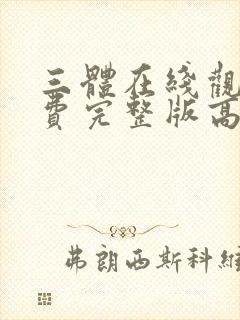 三體在綫觀
費完整版高
弗朗西斯科維